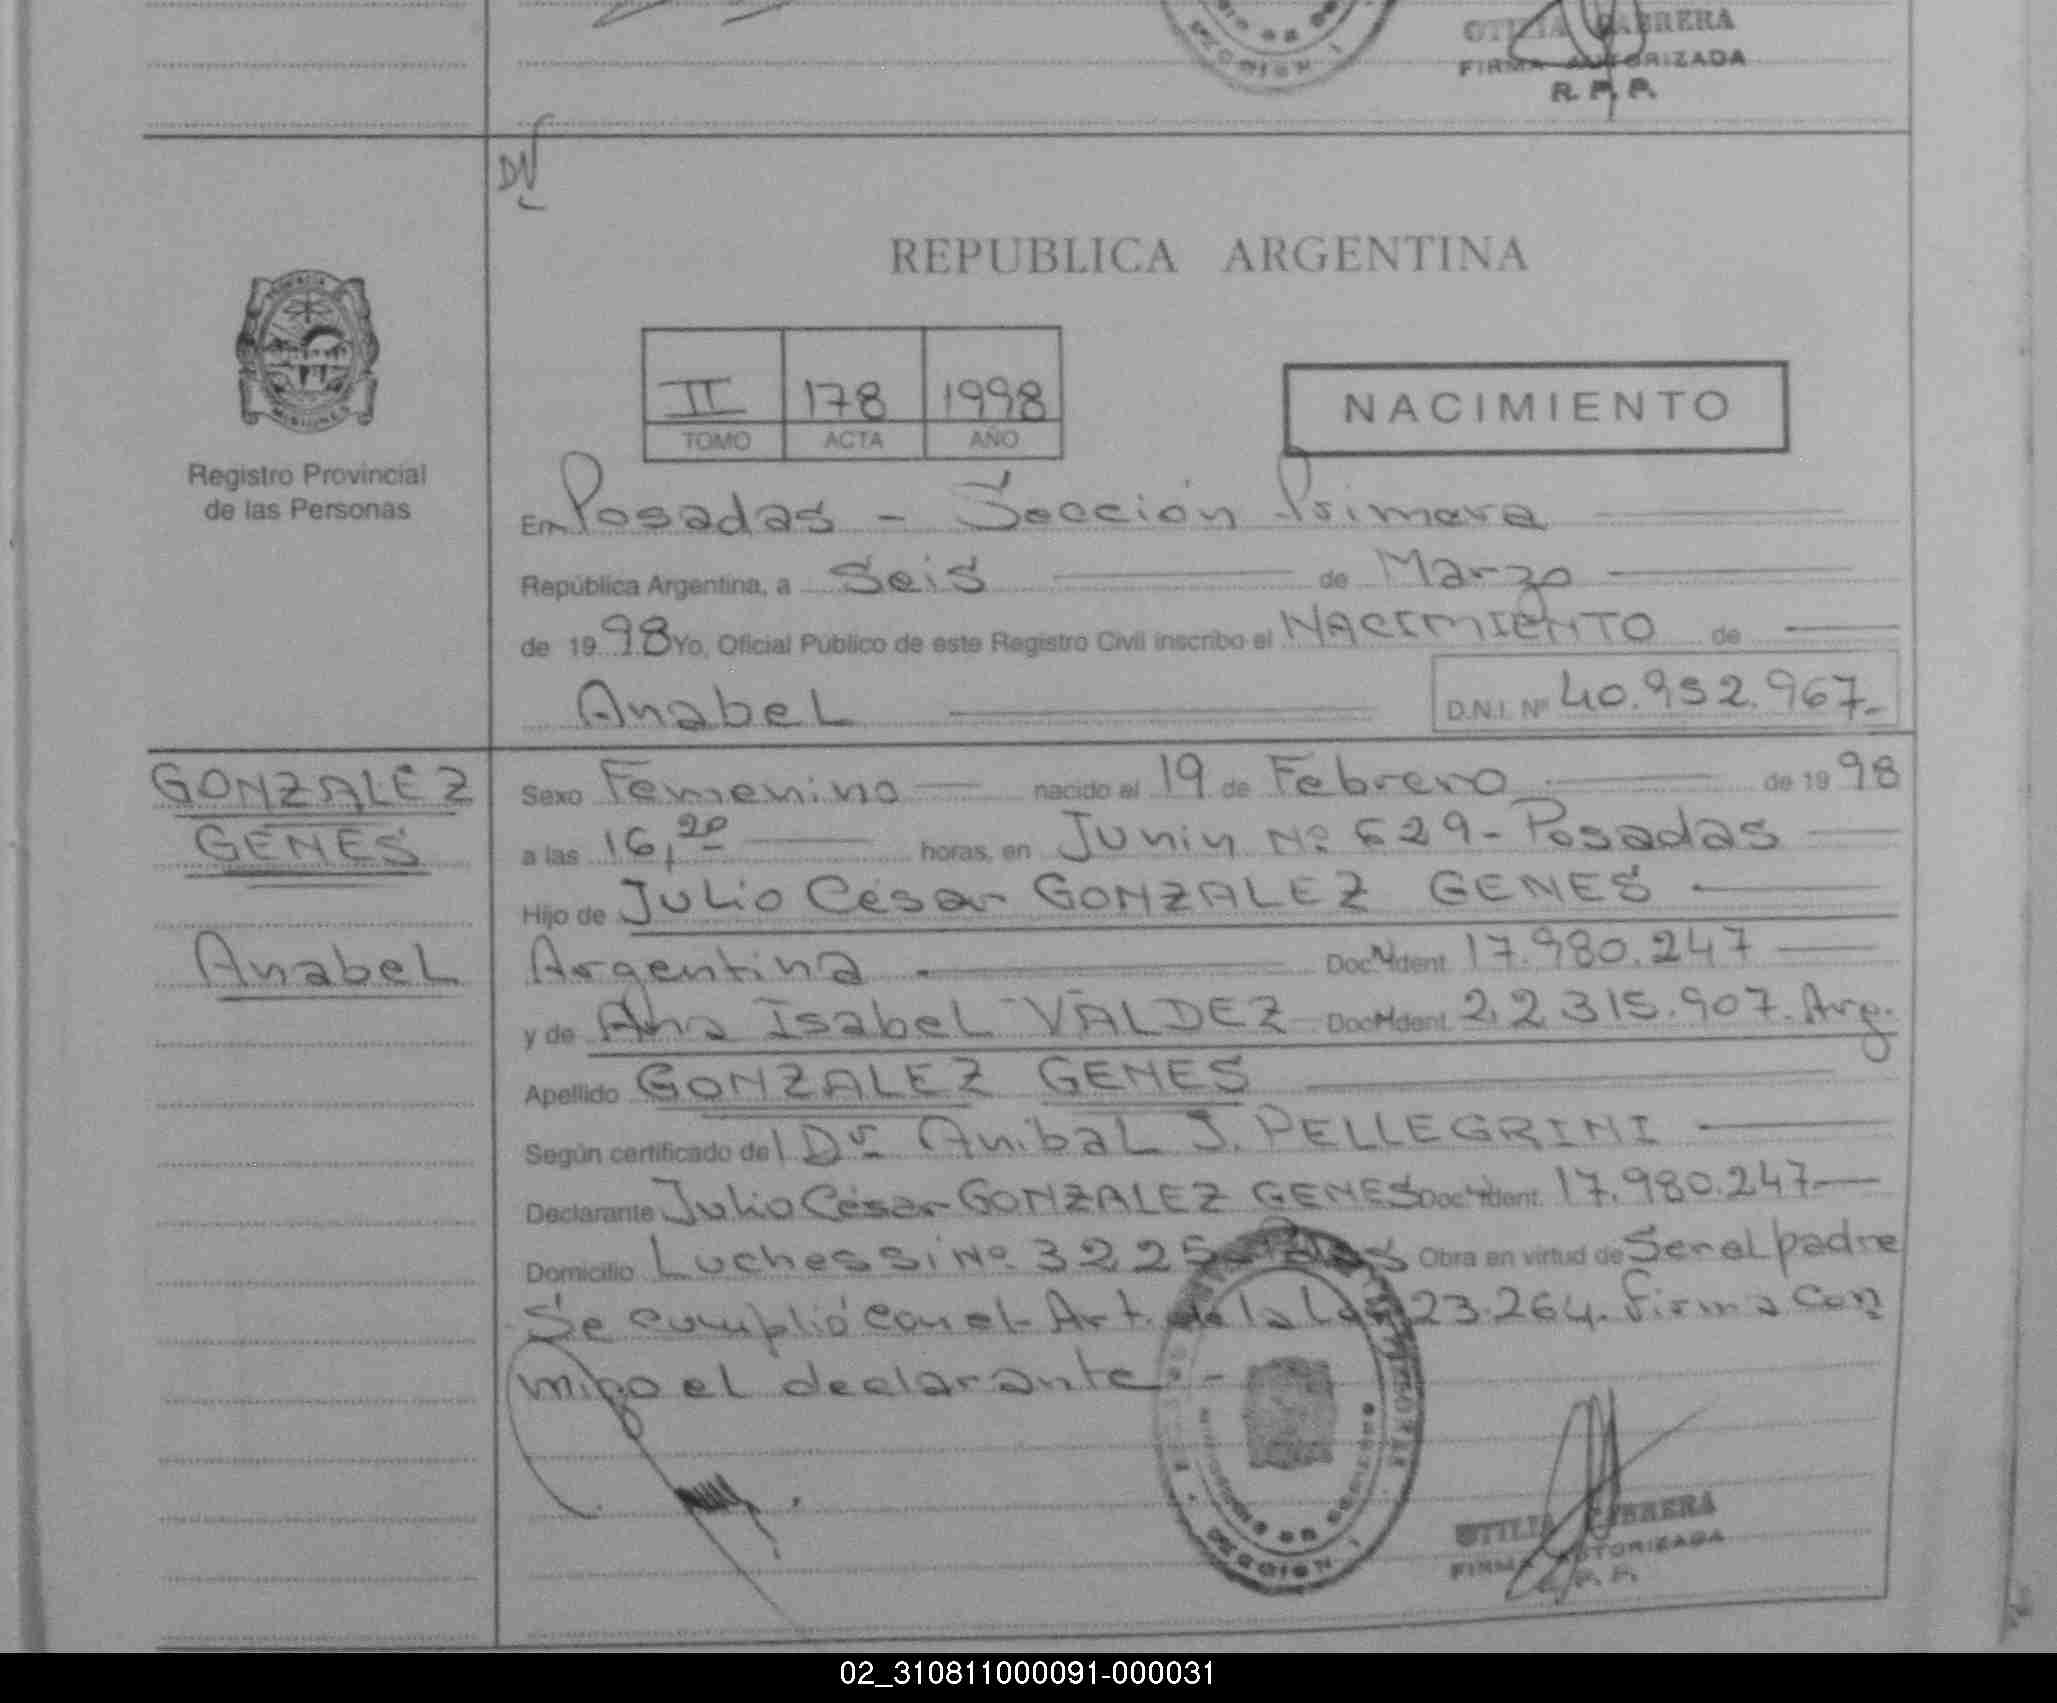 OTILIA CABRERA
FIRMA AUTORIZADA
R. P. P.
REPUBLICA ARGENTINA
II 178 1998
TOMO ACTA AÑO
NACIMIENTO
Registro Provincial
de las Personas
En Posadas - Sección Primera
República Argentina, a Seis de Marzo
de 1998 Yo, Oficial Público de este Registro Civil inscribo el NACIMIENTO de
Anabel D.N.I. Nº 40.952.967.-
GONZALEZ
GENES
Anabel
Sexo Femenino nacido el 19 de Febrero de 1998
a las 16,20 horas, en Junin Nº 629 - Posadas
Hijo de Julio César GONZALEZ GENES
Argentina Doc. Ident. 17.980.247
y de Ana Isabel VALDEZ Doc. Ident. 22.315.907. Arg.
Apellido GONZALEZ GENES
Según certificado del Dr. Anibal J. PELLEGRINI
Declarante Julio César GONZALEZ GENES Doc. Ident. 17.980.247
Domicilio Luchessi Nº 3225 Obra en virtud de Ser el padre
Se cumplió con el Art. de la Ley 23.264. firma con
migo el declarante.-
OTILIA CABRERA
FIRMA AUTORIZADA
R. P. P.
02_310811000091-000031